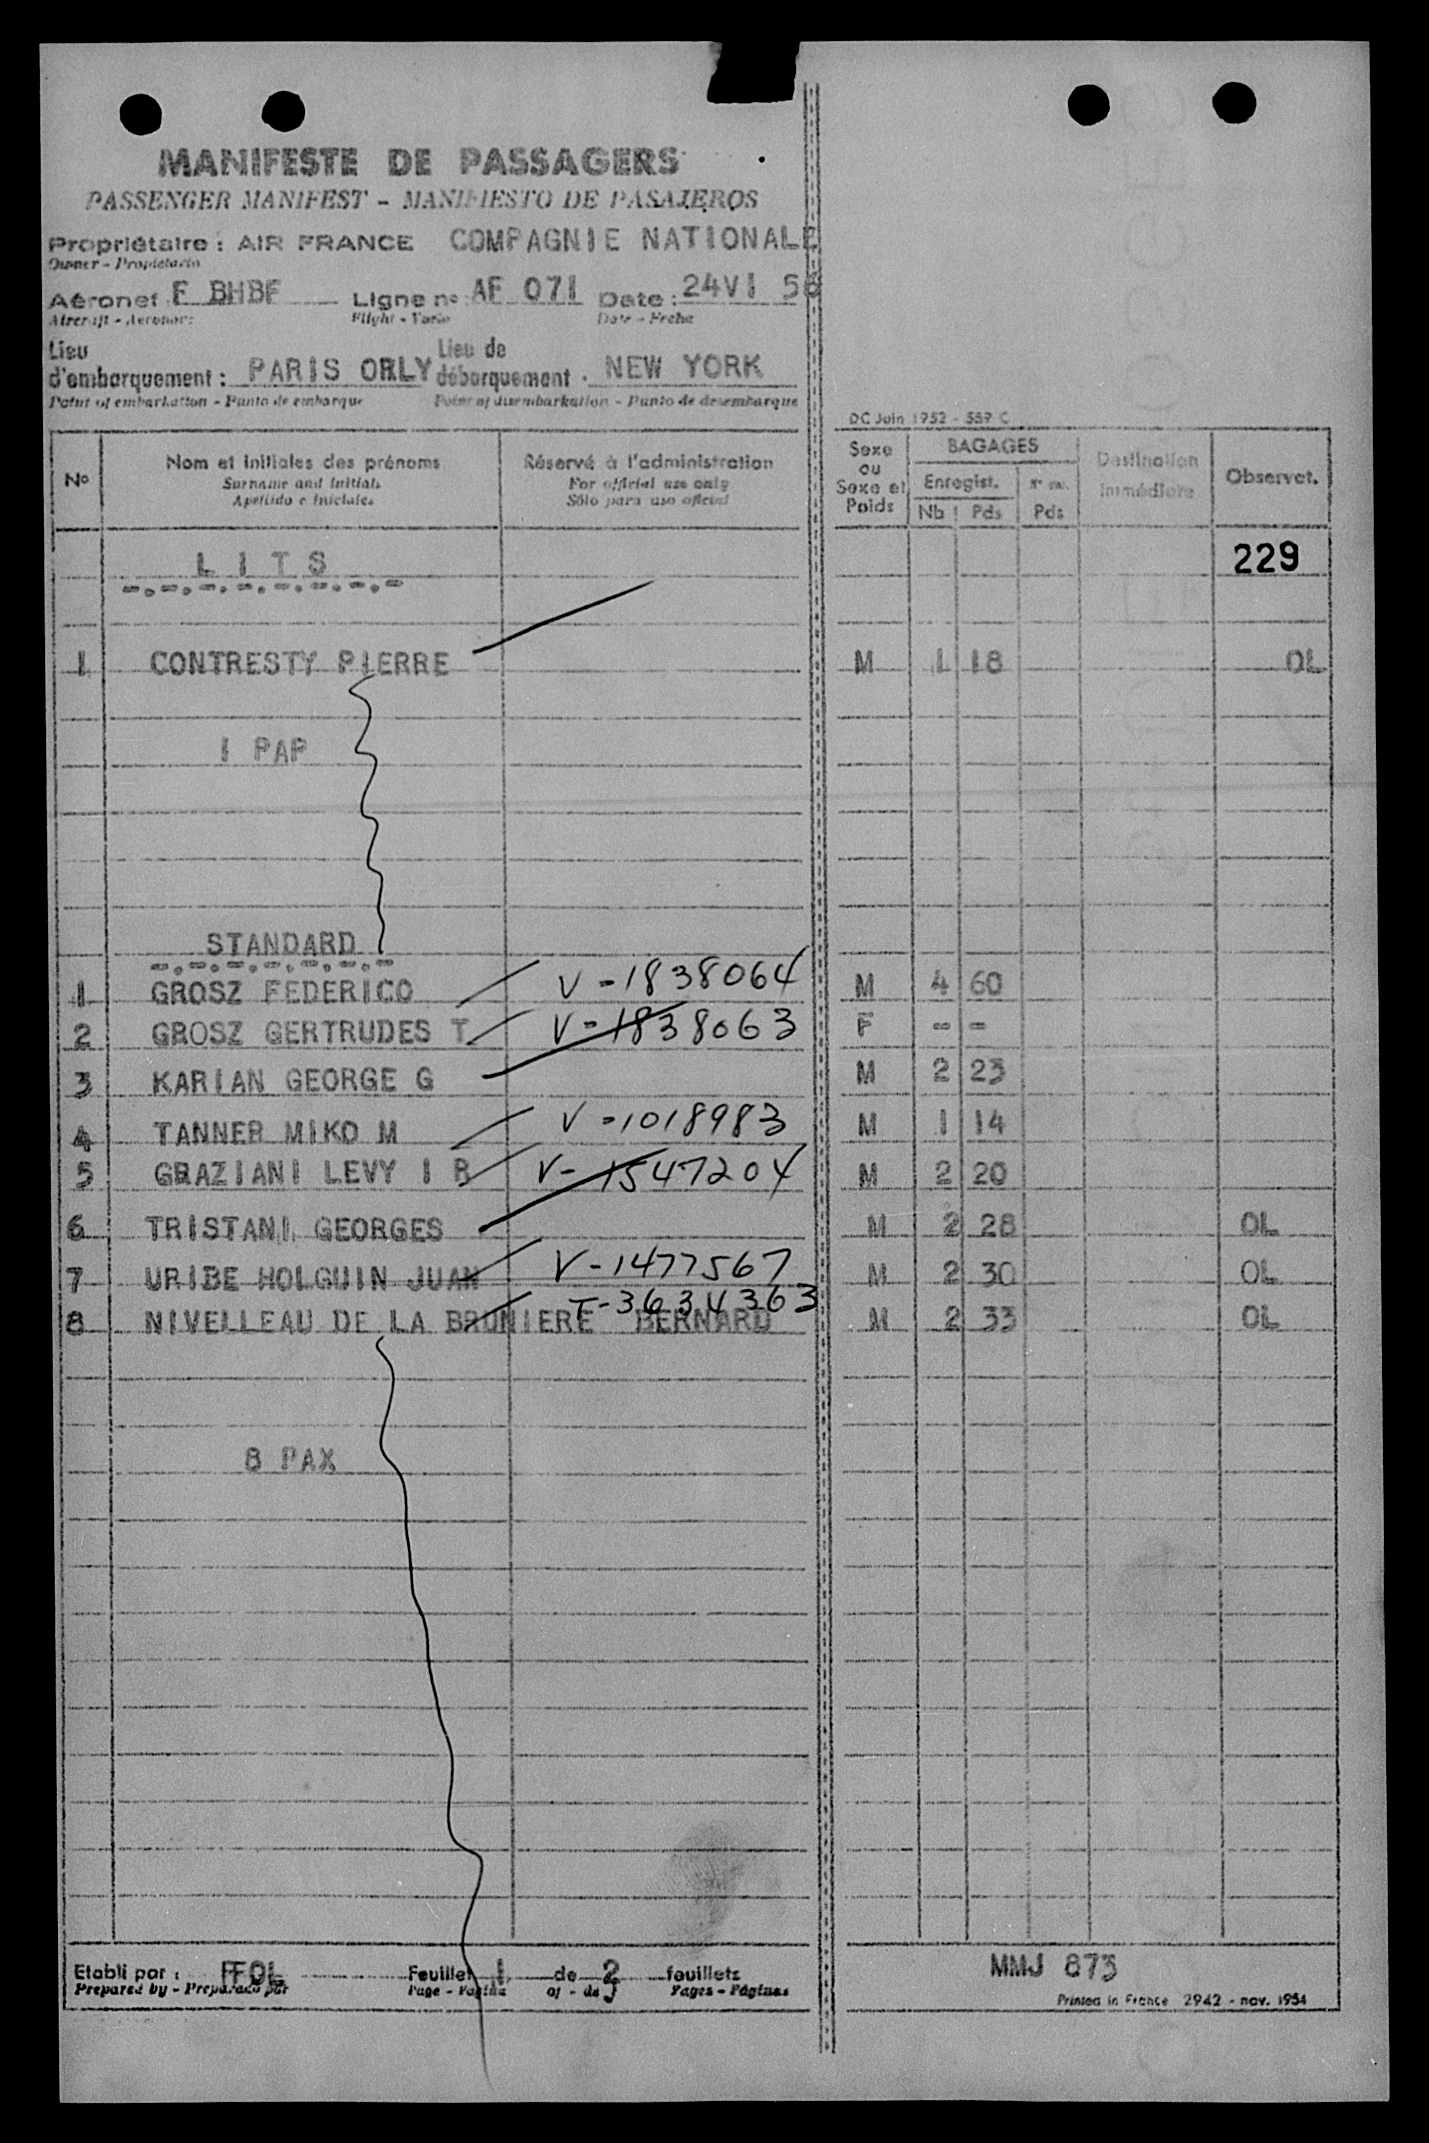 MANIFESTE DE PASSAGERS
PASSENGER MANIFEST - MANIFIESTO DE PASAJEROS
Propriétaire : AIR FRANCE COMPAGNIE NATIONALE
Owner - Propietario
Aéronef F BHBF Ligne no AF 071 Date : 24VI 56
Aircraft - Aeronave Flight - Vuelo Date - Fecha
Lieu d'embarquement : PARIS ORLY Lieu de débarquement : NEW YORK
Point of embarkation - Punto de embarque Point of disembarkation - Punto de desembarque
DC Juin 1952 - 559 C
No Nom et initiales des prénoms Réservé à l'administration Sexe ou Sexe et Poids BAGAGES Destination immédiate Observat.
Surname and initials For official use only Enregist.
Apellido e iniciales Sólo para uso oficial Nb Pds Pds
L I T S 229
1 CONTRESTY PIERRE M 1 18 OL
1 PAP
STANDARD
1 GROSZ FEDERICO V-1838064 M 4 60
2 GROSZ GERTRUDES T V-1838063 F - -
3 KARIAN GEORGE G M 2 23
4 TANNER MIKO M V-1018983 M 1 14
5 GRAZIANI LEVY I R V-1547204 M 2 20
6 TRISTANI GEORGES M 2 28 OL
7 URIBE HOLGUIN JUAN V-1477567 M 2 30 OL
8 NIVELLEAU DE LA BRUNIERE BERNARD T-3634363 M 2 33 OL
8 PAX
Etabli par : FFOL Feuillet 1 de 2 feuillets MMJ 873
Prepared by - Preparado por Page - Página of - de Pages - Páginas Printed in France 2942 - nov. 1954